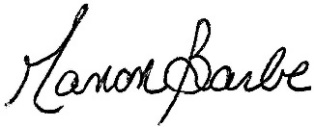 Manon Barbe